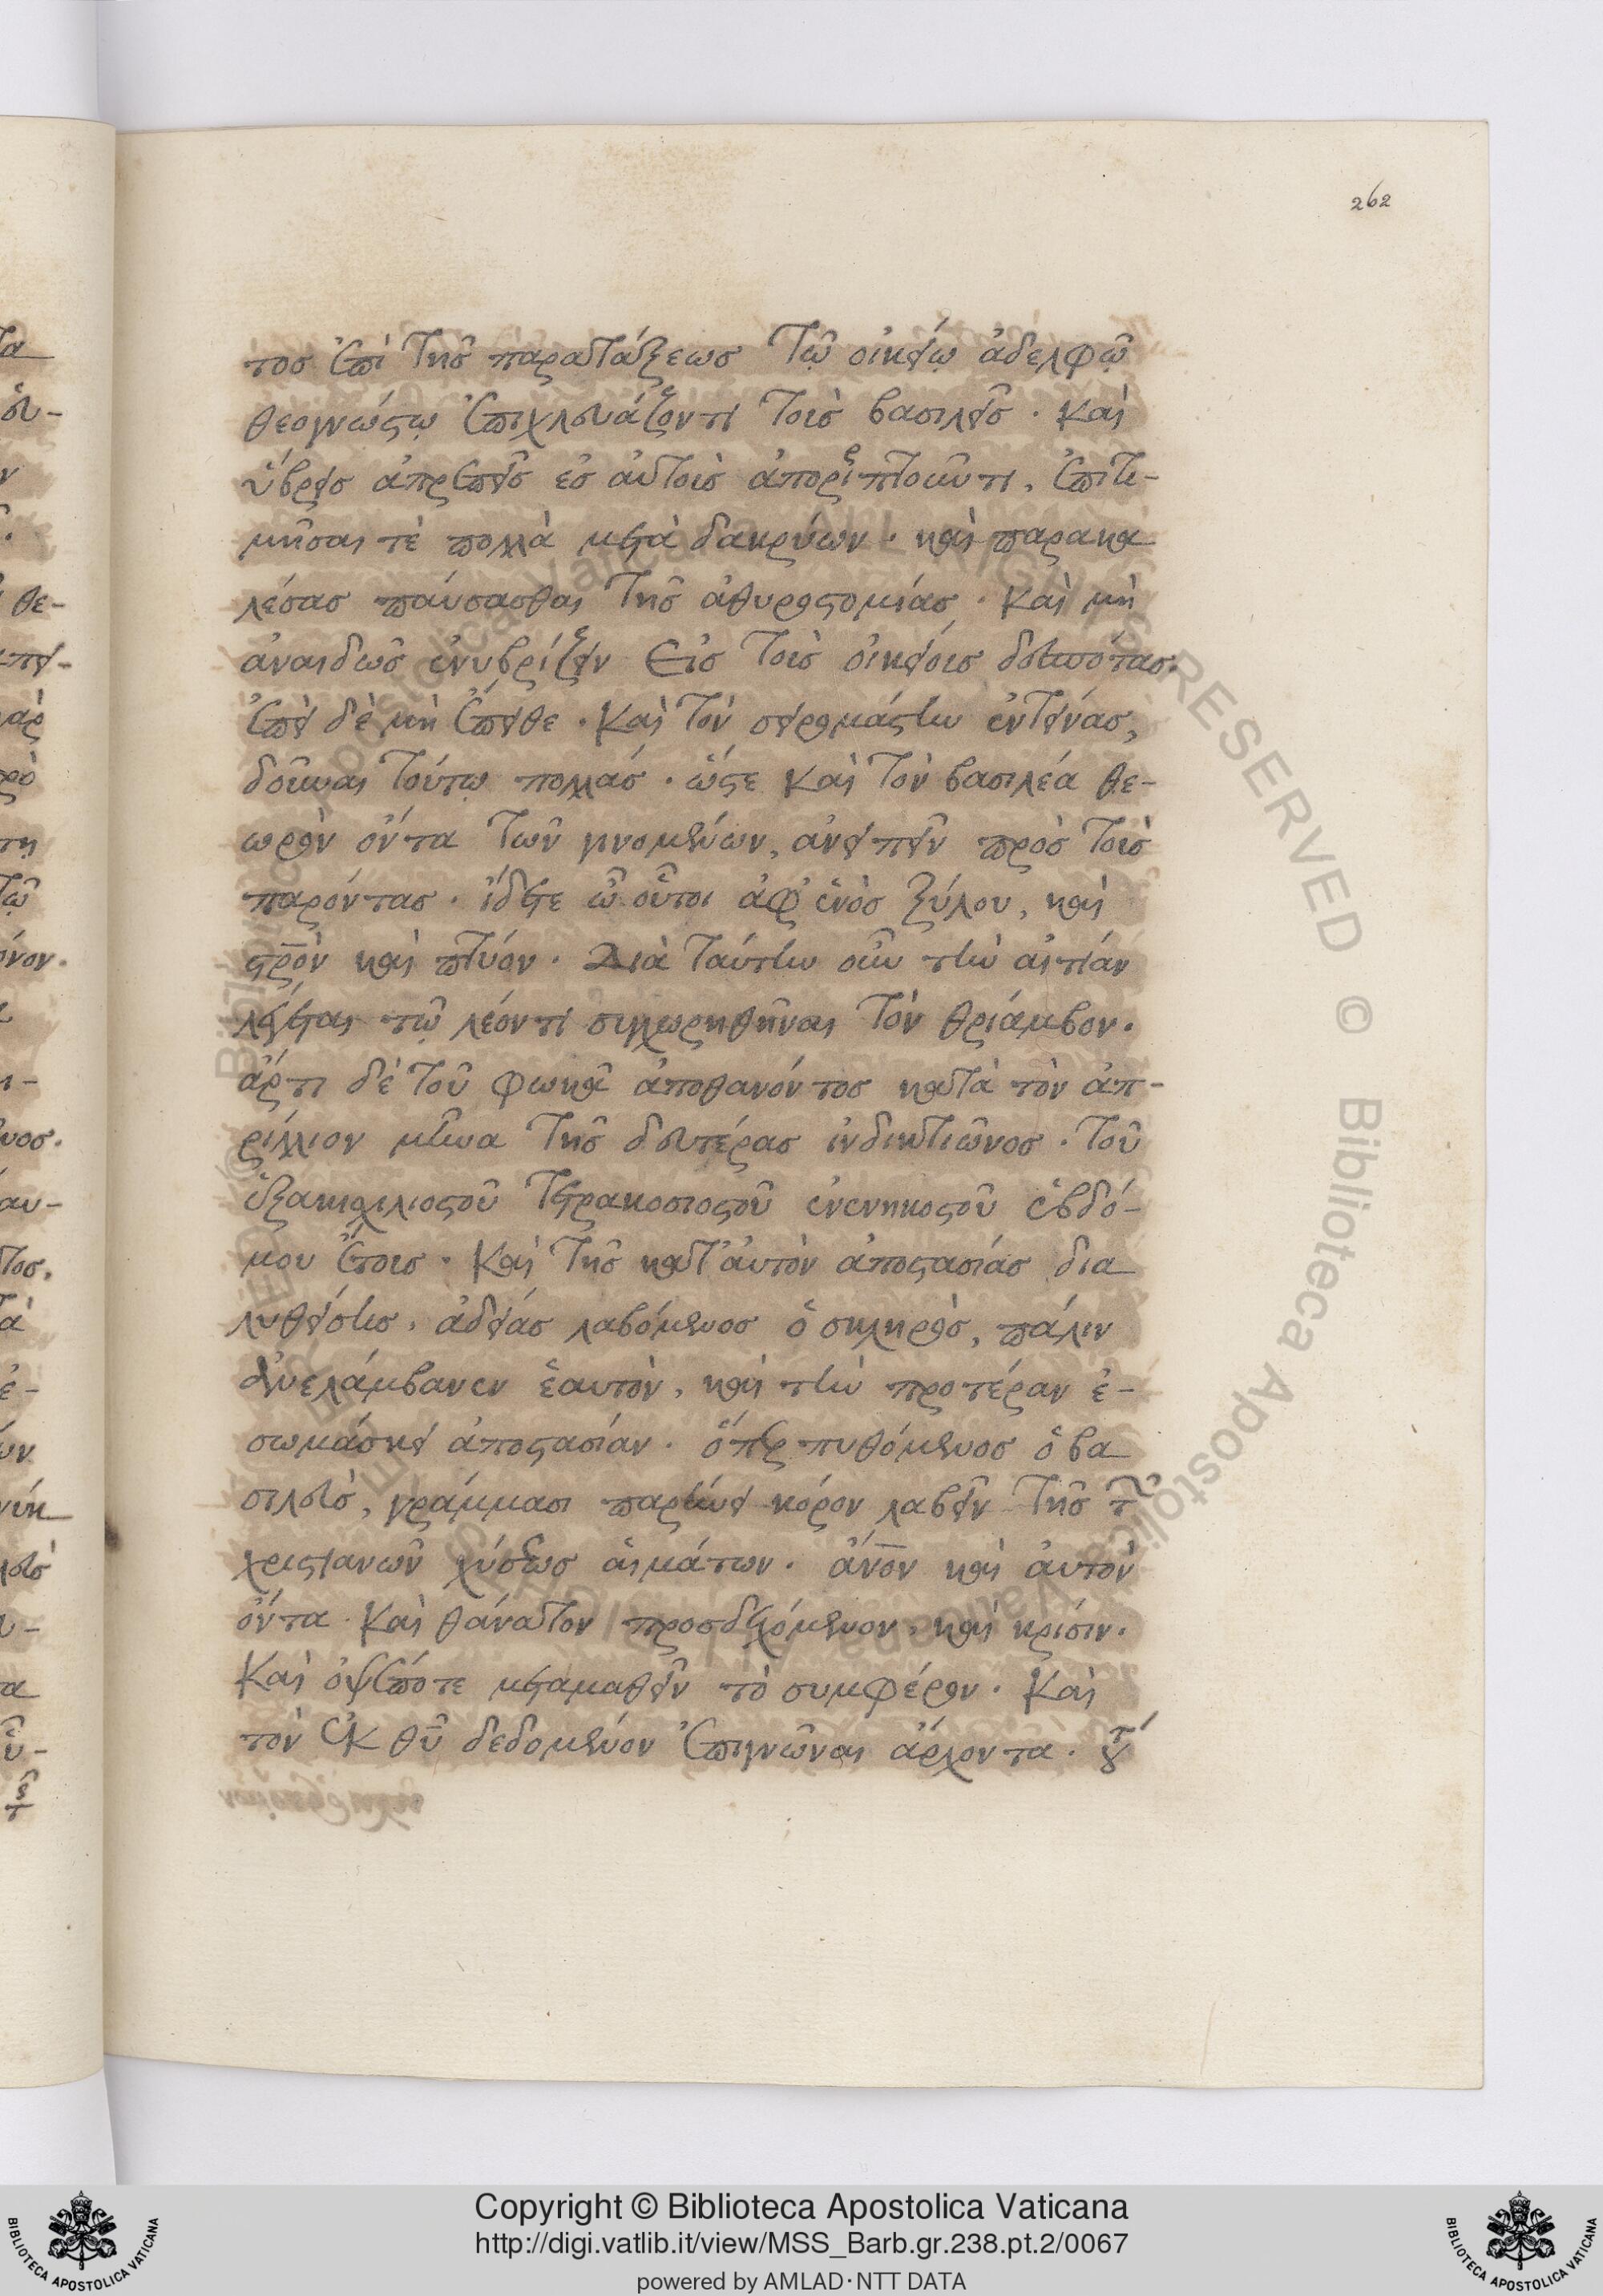 262
τος ἐπὶ τῆς παρατάξεως τῷ οἰκείῳ ἀδελφῷ
θεογνώστῳ ἐπιχλευάζοντι τοὺς βασιλεῖς · καὶ
ὕβρεις ἀπρεπεῖς ἐς αὐτοὺς ἀποῤῥιπτοῦντι, ἐπιτι-
μῆσαι τὲ πολλὰ μετὰ δακρύων · καὶ παρακα
λέσας παύσασθαι τῆς ἀθυροστομίας · καὶ μὴ
ἀναιδῶς ἐνυβρίζειν εἰς τοὺς οἰκείους δεσπότας.
ἐπεὶ δὲ μὴ ἔπειθε · καὶ τὸν σειρομάστην ἐντείνας,
δοῦναι τούτῳ πολλάς · ὥστε καὶ τὸν βασιλέα θε-
ωρὸν ὄντα τῶν γινομένων, ἀνειπεῖν πρὸς τοὺς
παρόντας · ἴδετε ὦ οὗτοι ἀφ' ἑνὸς ξύλου, καὶ
στρον καὶ πτύον · Διὰ ταύτην οὖν τὴν αἰτίαν
λέγεται τῷ λέοντι συγχωρηθῆναι τὸν θρίαμβον.
ἄρτι δὲ τοῦ φωκᾶ ἀποθανόντος κατὰ τὸν ἀπ-
ρίλλιον μῆνα τῆς δευτέρας ἰνδικτιῶνος · τοῦ
ἑξακισχιλιοστοῦ τετρακοσιοστοῦ ἐνενηκοστοῦ ἑβδό-
μου ἔτους · καὶ τῆς κατ' αὐτὸν ἀποστασίας δια
λυθείσης, ἀδείας λαβόμενος ὁ σκληρὸς, πάλιν
ἀνελάμβανεν ἑαυτὸν, καὶ τὴν προτέραν ἐ-
σωμάσκει ἀποστασίαν · ὅπερ πυθόμενος ὁ βα
σιλεὺς, γράμμασι παρῄνει κόρον λαβεῖν τῆς τῶν
χριστιανῶν χύσεως αἱμάτων · ἄνον καὶ αὐτὸν
ὄντα · καὶ θάνατον προσδεχόμενον, καὶ κρίσιν.
καὶ ὀψέποτε μεταμαθεῖν τὸ συμφέρον · καὶ
τὸν ἐκ θυ δεδομένον ἐπιγνῶναι ἄρχοντα ·
Copyright © Biblioteca Apostolica Vaticana
http://digi.vatlib.it/view/MSS_Barb.gr.238.pt.2/0067
powered by AMLAD·NTT DATA